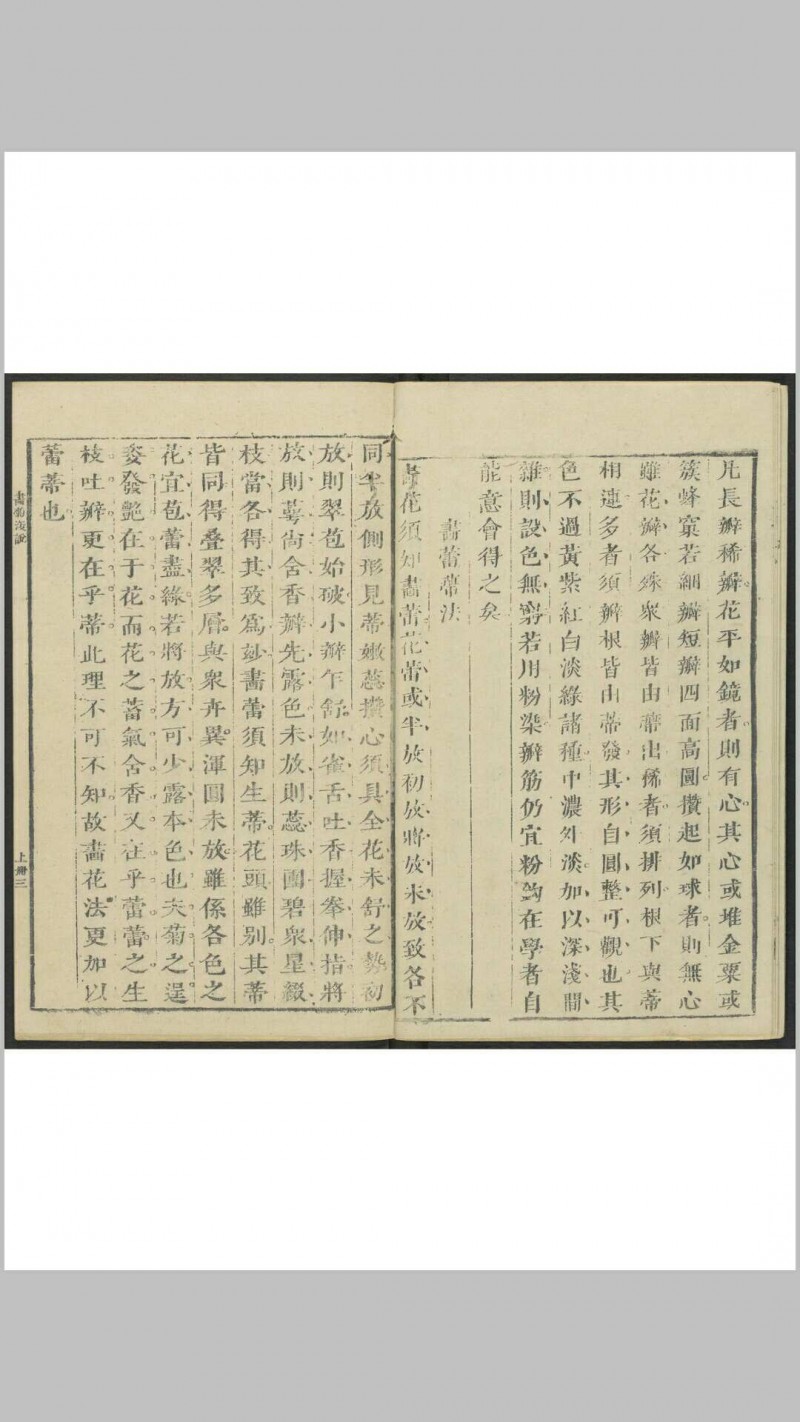 凡長瓣稀瓣花平如鏡者則有心其心或堆金粟或
簇蜂窠若細瓣短瓣四面高圓攢起如球者則無心
雖花瓣各殊衆瓣皆由蒂出稀者須排列根下與蒂
相連多者須瓣根皆由蒂發其形自圓整可觀也其
色不過黃紫紅白淡綠諸種中濃外淡加以深淺間
雜則設色無窮若用粉染瓣筋仍宜粉鈎在學者自
能意會得之矣
畫蕾蒂法
畫花須知畫蕾花蕾或半放初放將放未放致各不
同半放側形見蒂嫩蕊攢心須具全花未舒之勢初
放則翠苞始破小瓣乍舒如雀舌吐香握拳伸指將
放則萼尚含香瓣先露色未放則蕊珠團碧衆星綴
枝當各得其致爲妙畫蕾須知生蒂花頭雖别其蒂
皆同得叠翠多層與衆卉異渾圓未放雖係各色之
花宜苞蕾盡綠若將放方可少露本色也夫菊之逞
姿發艷在于花而花之蓄氣含香又在乎蕾蕾之生
枝吐瓣更在乎蒂此理不可不知故畫花法更加以
蕾蒂也
畫菊淺說
上冊三